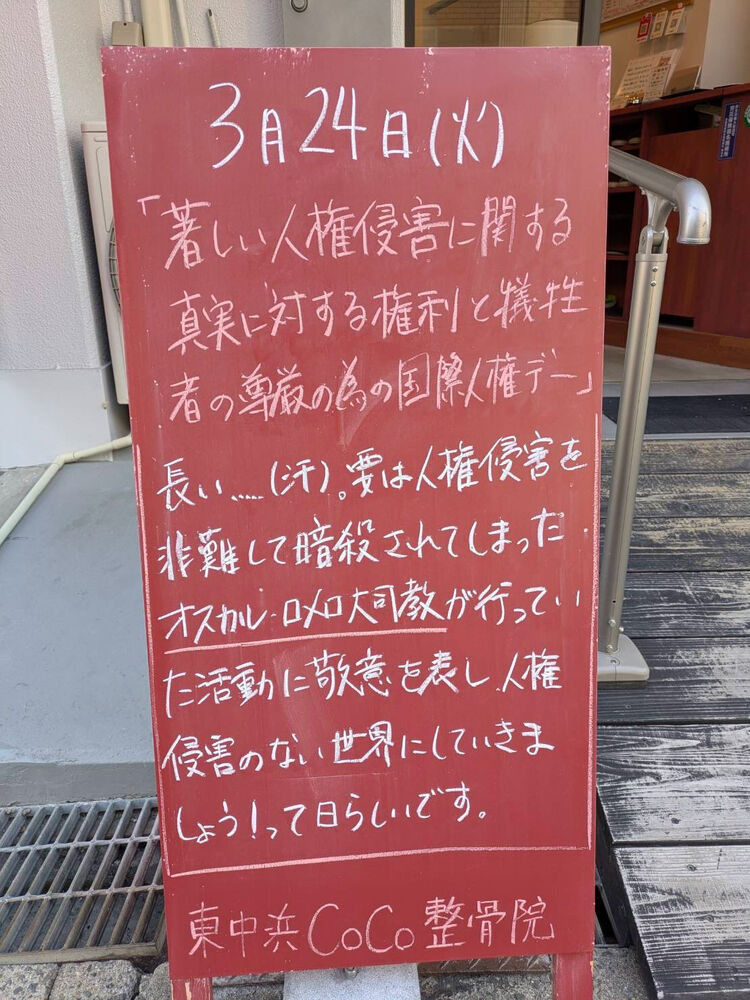 3月24日(火)
「著しい人権侵害に関する
真実に対する権利と犠牲
者の尊厳の為の国際人権デー」
長い……(汗)。要は人権侵害を
非難して暗殺されてしまった
オスカル・ロメロ大司教が行ってい
た活動に敬意を表し、人権
侵害のない世界にしていきま
しょう!って日らしいです。
東中浜CoCo整骨院